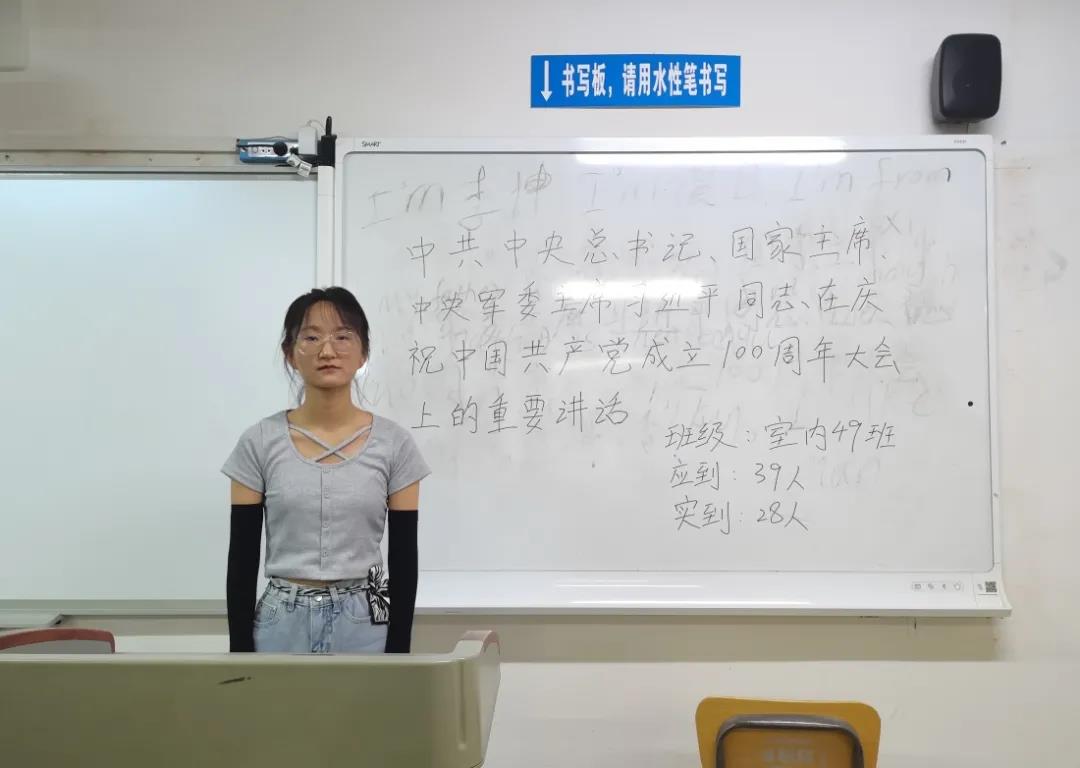 书写板，请用水性笔书写
SMART
I'm from
中共中央总书记、国家主席、
中央军委主席习近平同志、在庆
祝中国共产党成立100周年大会
上的重要讲话
班级：室内49班
应到：39人
实到：28人